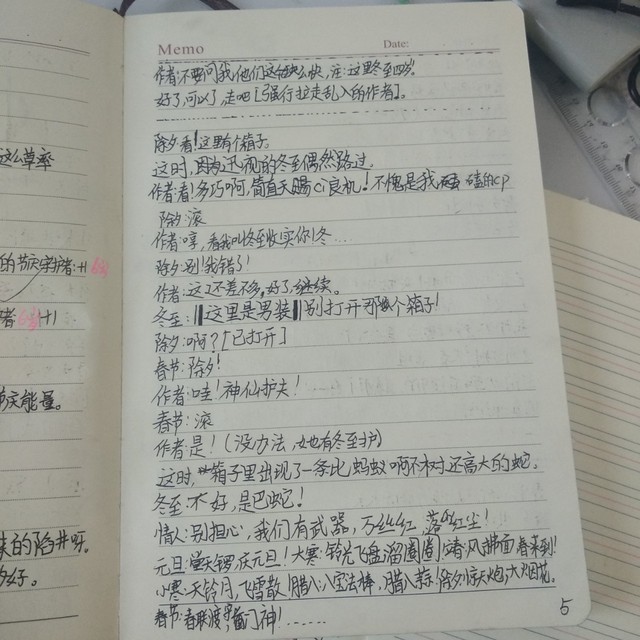 Memo Date:
作者:不要问我他们这么快,注:这里冬至四岁。
好了,可以了,走吧[强行拉走乱入的作者]。
除夕:看!这里有个箱子。
这时,因为近视的冬至偶然路过。
作者:看!多巧啊,简直天赐ci良机!不愧是我 磕的cp
除夕:滚
作者:哼,看我叫冬至收实你!冬....
除夕:别!我错了!
作者:这还差不多,好了,继续。
冬至:‖这里是男装‖别打开那个箱子!
除夕:啊?[已打开]
春节:除夕!
作者:哇!神仙护夫!
春节:滚
作者:是!(没办法,她也有冬至护)
这时,箱子里出现了一条比蚂蚁啊不树还高大的蛇。
冬至:不好,是巴蛇!
情人:别担心,我们有武器,万丝红 落红尘!
元旦:锣庆元旦!大寒:铃光飞盘溜圈圈!春:风拂面春来到!
小寒:天铃月,飞雪散!腊八:八宝法棒,腊八蒜!除夕:惊天炮,大烟花。
春节:春联波,雷门神!......
5
这么草率
的节庆守护者:+1
者 +1
节庆能量。
的陷井呀。
好。